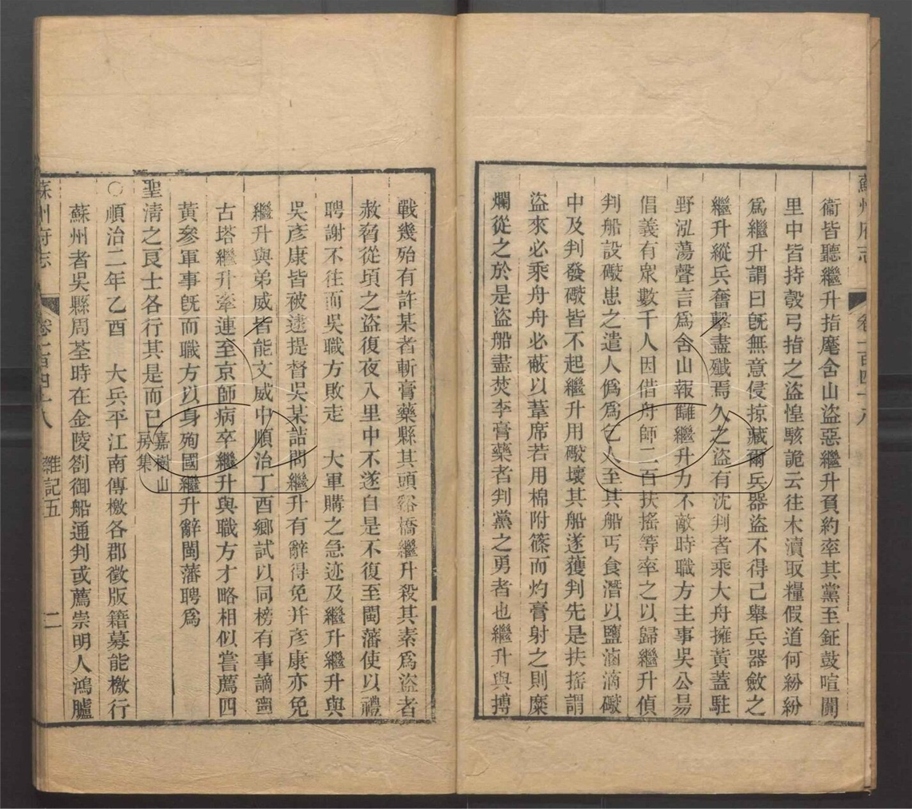 蘇州府志 卷一百四十八
衛皆聽繼升指麾舍山盜惡繼升負約率其黨至鉦鼓喧闐
里中皆持彀弓指之盜惶駭詭云往木瀆取糧假道何紛紛
爲繼升謂曰旣無意侵掠藏爾兵器盜不得已舉兵器斂之
繼升縱兵奮擊盡殲焉久之盜有沈判者乘大舟擁黃蓋駐
野泓蕩聲言爲舍山報讎繼升力不敵時職方主事吳公昜
倡義有衆數千人因借舟師二百扶搖等率之以歸繼升偵
判船設礮患之遣人僞爲乞人至其船丐食潛以鹽滷滴礮
中及判發礮皆不起繼升用礮壞其船遂獲判先是扶搖謂
盜來必乘舟舟必蔽以葦席若用棉附篠而灼膏射之則糜
爛從之於是盜船盡焚李膏藥者判黨之勇者也繼升與搏
戰幾殆有許某者斬膏藥縣其頭谿橋繼升殺其素爲盜者
赦脅從頃之盜復夜入里中不遂自是不復至閩藩使以禮
聘謝不往而吳職方敗走 大軍購之急迹及繼升繼升與
吳彥康皆被逮提督吳某詰問繼升有辭得免幷彥康亦免
繼升與弟威皆能文威中順治丁酉鄉試以同榜有事謫寧
古塔繼升牽連至京師病卒繼升與職方才略相似嘗薦四
黃參軍事旣而職方以身殉國繼升辭閩藩聘爲
聖淸之良士各行其是而已嘉樹山
房集
○順治二年乙酉 大兵平江南傳檄各郡徵版籍募能檄行
蘇州者吳縣周荃時在金陵劄御船通判或薦崇明人鴻臚
蘇州府志 卷一百四十八 雜記五 二